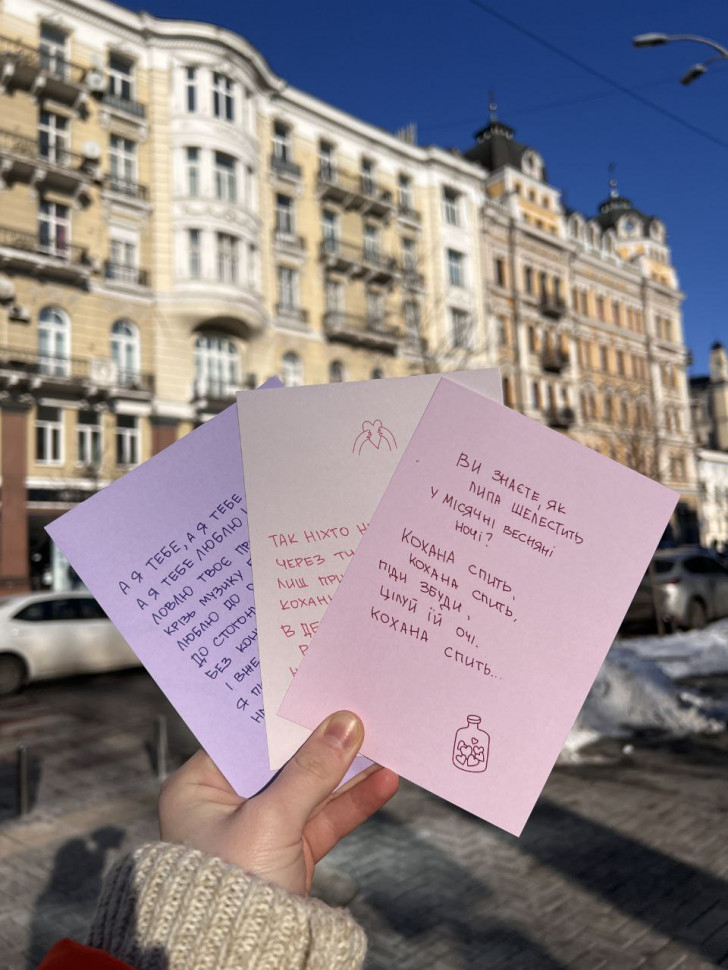 А Я ТЕБЕ, А Я ТЕБЕ
А Я ТЕБЕ ЛЮБЛЮ І
ЛОВЛЮ ТВОЄ
КРІЗЬ МУЗИКУ
ЛЮБЛЮ ДО
ДО СТОГОН
БЕЗ
І ВЖЕ
Я
ТАК НІХТО
ЧЕРЕЗ
ЛИШ
КОХАНН
В
ВИ ЗНАЄТЕ, ЯК
ЛИПА ШЕЛЕСТИТЬ
У МІСЯЧНІ ВЕСНЯНІ
НОЧІ?
КОХАНА СПИТЬ,
КОХАНА СПИТЬ,
ПІДИ ЗБУДИ,
ЦІЛУЙ ЇЙ ОЧІ.
КОХАНА СПИТЬ...